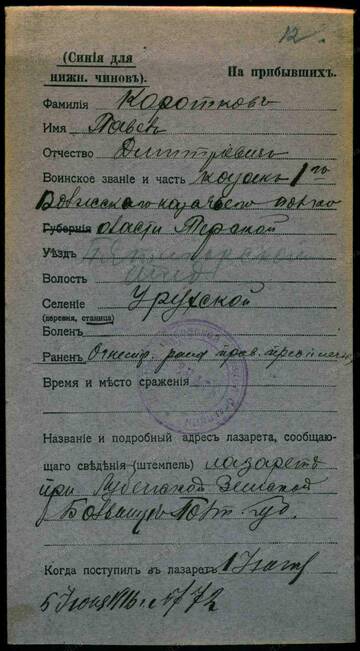 12.
(Синія для
нижн. чиновъ).
На прибывшихъ.
Фамилія Коротковъ
Имя Павелъ
Отчество Дмитріевичъ
Воинское званіе и часть казакъ 1го
казачьяго полка
Губернія области Терской
Уѣздъ Пятигорской
Волость
Селеніе Урухской
(деревня, станица)
Боленъ
Раненъ Огнестр. рана прав. предплечья
Время и мѣсто сраженія
Названіе и подробный адресъ лазарета, сообщаю-
щаго свѣдѣнія (штемпель) лазаретъ
при Лубенской Земской
Больницѣ Полт. губ.
Когда поступилъ въ лазаретъ
5 Іюня